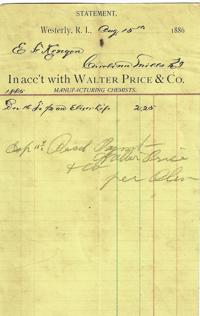 STATEMENT.
Westerly, R. I., Aug 15th 1886
E. F. Kenyon
Carolina Mills RI
In acc't with WALTER PRICE & CO.
MANUFACTURING CHEMISTS.
1885
Dec 2.25
Sep Recd Paymt
Walter Price
& Co
per